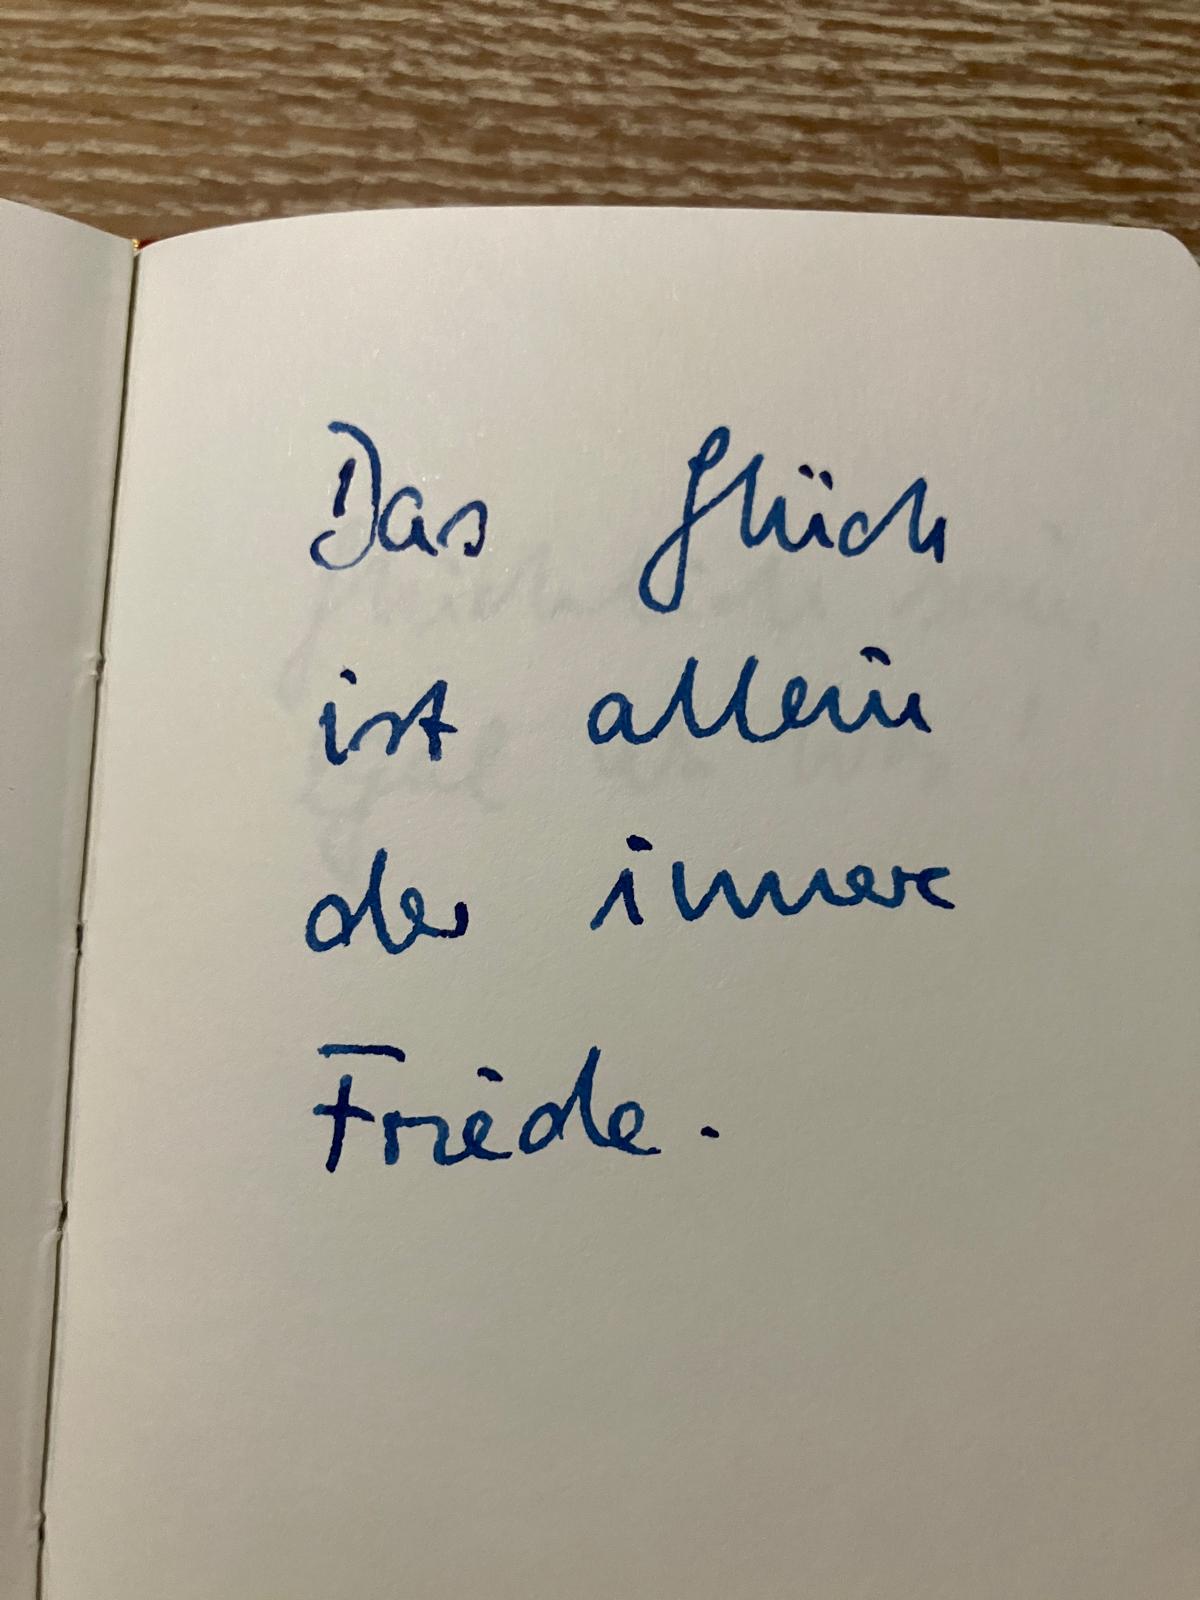 Das Glück
ist allein
der innere
Friede.